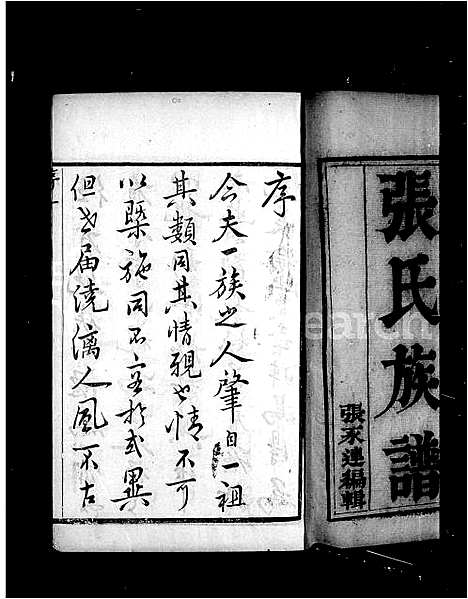 張氏族譜
張承連編輯
序
今夫一族之人肇自一祖
其類同其情親也情不可
以槩施同不容於或異
但世届澆漓人風不古
序一
earch